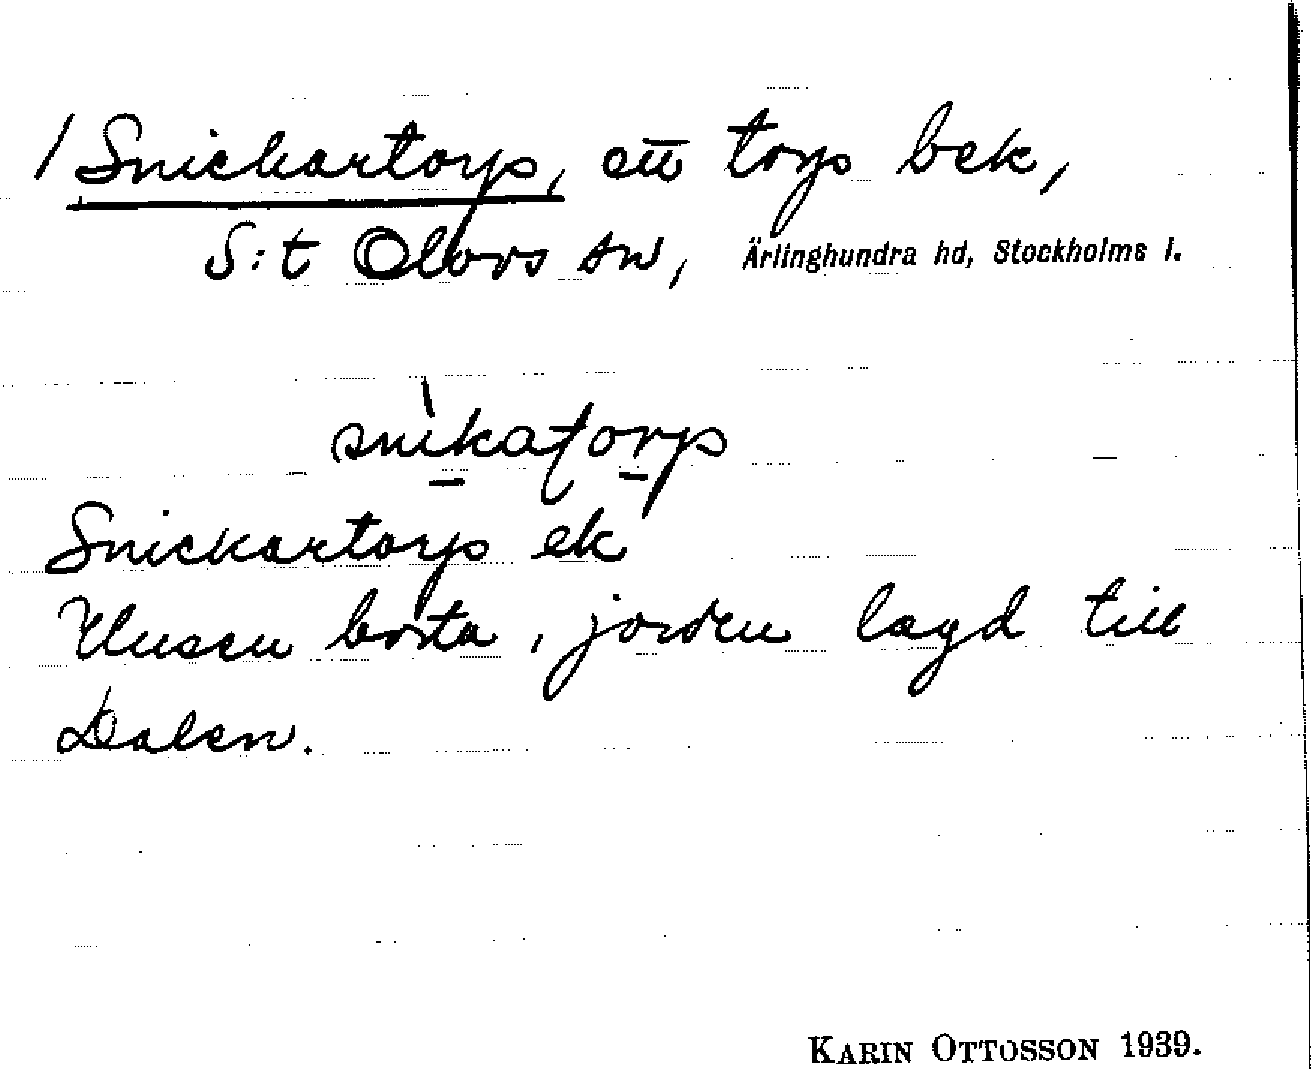 / Snickartorp, ett torp bek,
S:t Olovs sn, Ärlinghundra hd, Stockholms l.
snìkatorp
Snickartorp ek
Husen borta, jorden lagd till
Dalen.
KARIN OTTOSSON 1939.